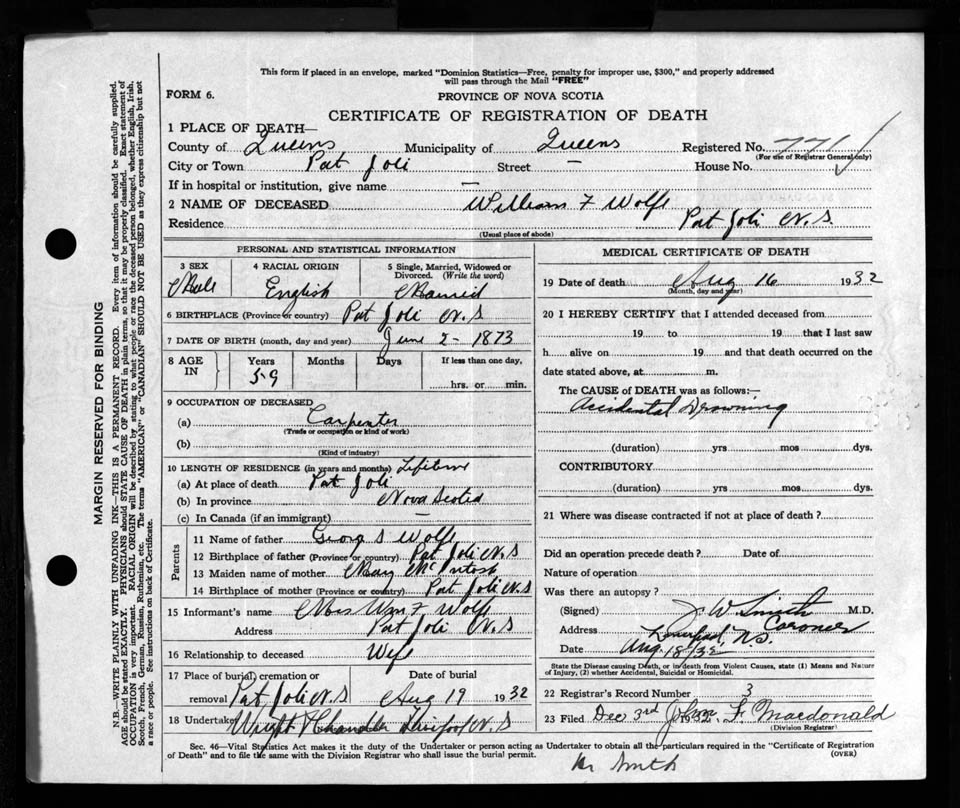 This form if placed in an envelope, marked "Dominion Statistics—Free, penalty for improper use, $300," and properly addressed
will pass through the Mail "FREE"
FORM 6.
PROVINCE OF NOVA SCOTIA
CERTIFICATE OF REGISTRATION OF DEATH
1 PLACE OF DEATH—
County of Queens Municipality of Queens Registered No.
(For use of Registrar General only)
City or Town Port Joli Street — House No.
If in hospital or institution, give name —
2 NAME OF DECEASED William F Wolfe
Residence Port Joli N.S
(Usual place of abode)
PERSONAL AND STATISTICAL INFORMATION
3 SEX Male
4 RACIAL ORIGIN English
5 Single, Married, Widowed or Divorced. (Write the word) Married
6 BIRTHPLACE (Province or country) Port Joli N.S
7 DATE OF BIRTH (month, day and year) June 2 - 1873
8 AGE IN Years 59 Months Days If less than one day, hrs. or min.
9 OCCUPATION OF DECEASED
(a) Carpenter
(Trade or occupation or kind of work)
(b)
(Kind of industry)
10 LENGTH OF RESIDENCE (in years and months) Lifetime
(a) At place of death Port Joli
(b) In province Nova Scotia
(c) In Canada (if an immigrant) —
Parents
11 Name of father George S Wolfe
12 Birthplace of father (Province or country) Port Joli N.S
13 Maiden name of mother Mary McIntosh
14 Birthplace of mother (Province or country) Port Joli N.S
15 Informant's name Mrs Wm F Wolfe
Address Port Joli N.S
16 Relationship to deceased Wife
17 Place of burial, cremation or removal Port Joli N.S Date of burial Aug 19 1932
18 Undertaker Wright N.S
MEDICAL CERTIFICATE OF DEATH
19 Date of death Aug 16 1932
(Month, day and year)
20 I HEREBY CERTIFY that I attended deceased from
19 to 19 that I last saw
h alive on 19 and that death occurred on the
date stated above, at m.
The CAUSE of DEATH was as follows:—
Accidental Drowning
(duration) yrs mos dys.
CONTRIBUTORY
(duration) yrs mos dys.
21 Where was disease contracted if not at place of death?
Did an operation precede death? Date of
Nature of operation
Was there an autopsy?
(Signed) J W Smith M.D.
Coroner
Address N.S.
Date Aug 18/32
State the Disease causing Death, or in death from Violent Causes, state (1) Means and Nature
of Injury, (2) whether Accidental, Suicidal or Homicidal.
22 Registrar's Record Number 3
23 Filed Dec 3rd 1932 John F. Macdonald
(Division Registrar)
Sec. 46—Vital Statistics Act makes it the duty of the Undertaker or person acting as Undertaker to obtain all the particulars required in the "Certificate of Registration
of Death" and to file the same with the Division Registrar who shall issue the burial permit. (OVER)
Dr Smith
MARGIN RESERVED FOR BINDING
N.B. WRITE PLAINLY WITH UNFADING INK—THIS IS A PERMANENT RECORD. Every item of information should be carefully supplied.
AGE should be stated EXACTLY. PHYSICIANS should STATE CAUSE OF DEATH in plain terms, so that it may be properly classified. Exact statement of
OCCUPATION is very important. RACIAL ORIGIN will be described by stating to what people or race the deceased person belonged, whether English, Irish,
Scotch, French, German, Russian, Ruthenian, etc. The terms "AMERICAN" or "CANADIAN" SHOULD NOT BE USED as they express citizenship but not
a race or people. See instructions on back of Certificate.